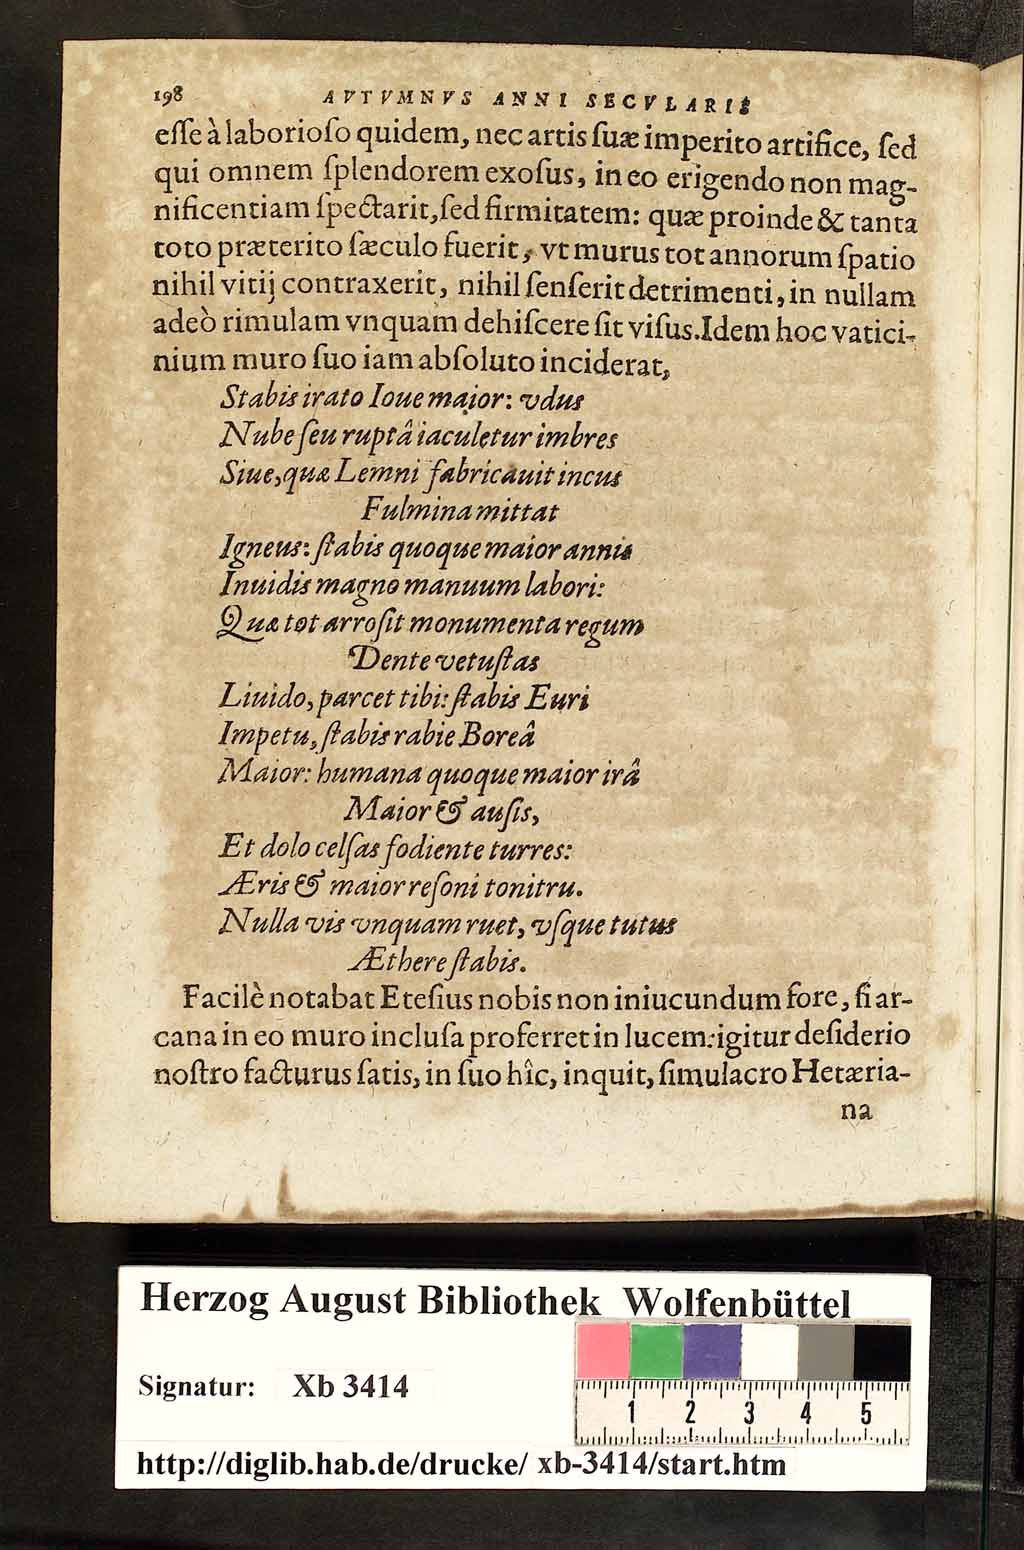 198 AVTVMNVS ANNI SECVLARIS
eſſe à laborioſo quidem, nec artis ſuæ imperito artifice, ſed
qui omnem ſplendorem exoſus, in eo erigendo non mag-
nificentiam ſpectarit, ſed firmitatem: quæ proinde & tanta
toto præterito ſæculo fuerit, vt murus tot annorum ſpatio
nihil vitij contraxerit, nihil ſenſerit detrimenti, in nullam
adeò rimulam vnquam dehiſcere ſit viſus. Idem hoc vatici-
nium muro ſuo iam abſoluto inciderat,
Stabis irato Ioue maior: vdus
Nube ſeu ruptâ iaculetur imbres
Siue, quæ Lemni fabricauit incus
Fulmina mittat
Igneus: ſtabis quoque maior annis
Inuidis magno manuum labori:
Quæ tot arroſit monumenta regum
Dente vetuſtas
Liuido, parcet tibi: ſtabis Euri
Impetu, ſtabis rabie Boreâ
Maior: humana quoque maior irâ
Maior & auſis,
Et dolo celſas fodiente turres:
Æris & maior reſoni tonitru.
Nulla vis vnquam ruet, vſque tutus
Æthere ſtabis.
Facilè notabat Eteſius nobis non iniucundum fore, ſi ar-
cana in eo muro incluſa proferret in lucem: igitur deſiderio
noſtro facturus ſatis, in ſuo hîc, inquit, ſimulacro Hetæria-
na
Herzog August Bibliothek Wolfenbüttel
Signatur: Xb 3414
1 2 3 4 5
http://diglib.hab.de/drucke/ xb-3414/start.htm